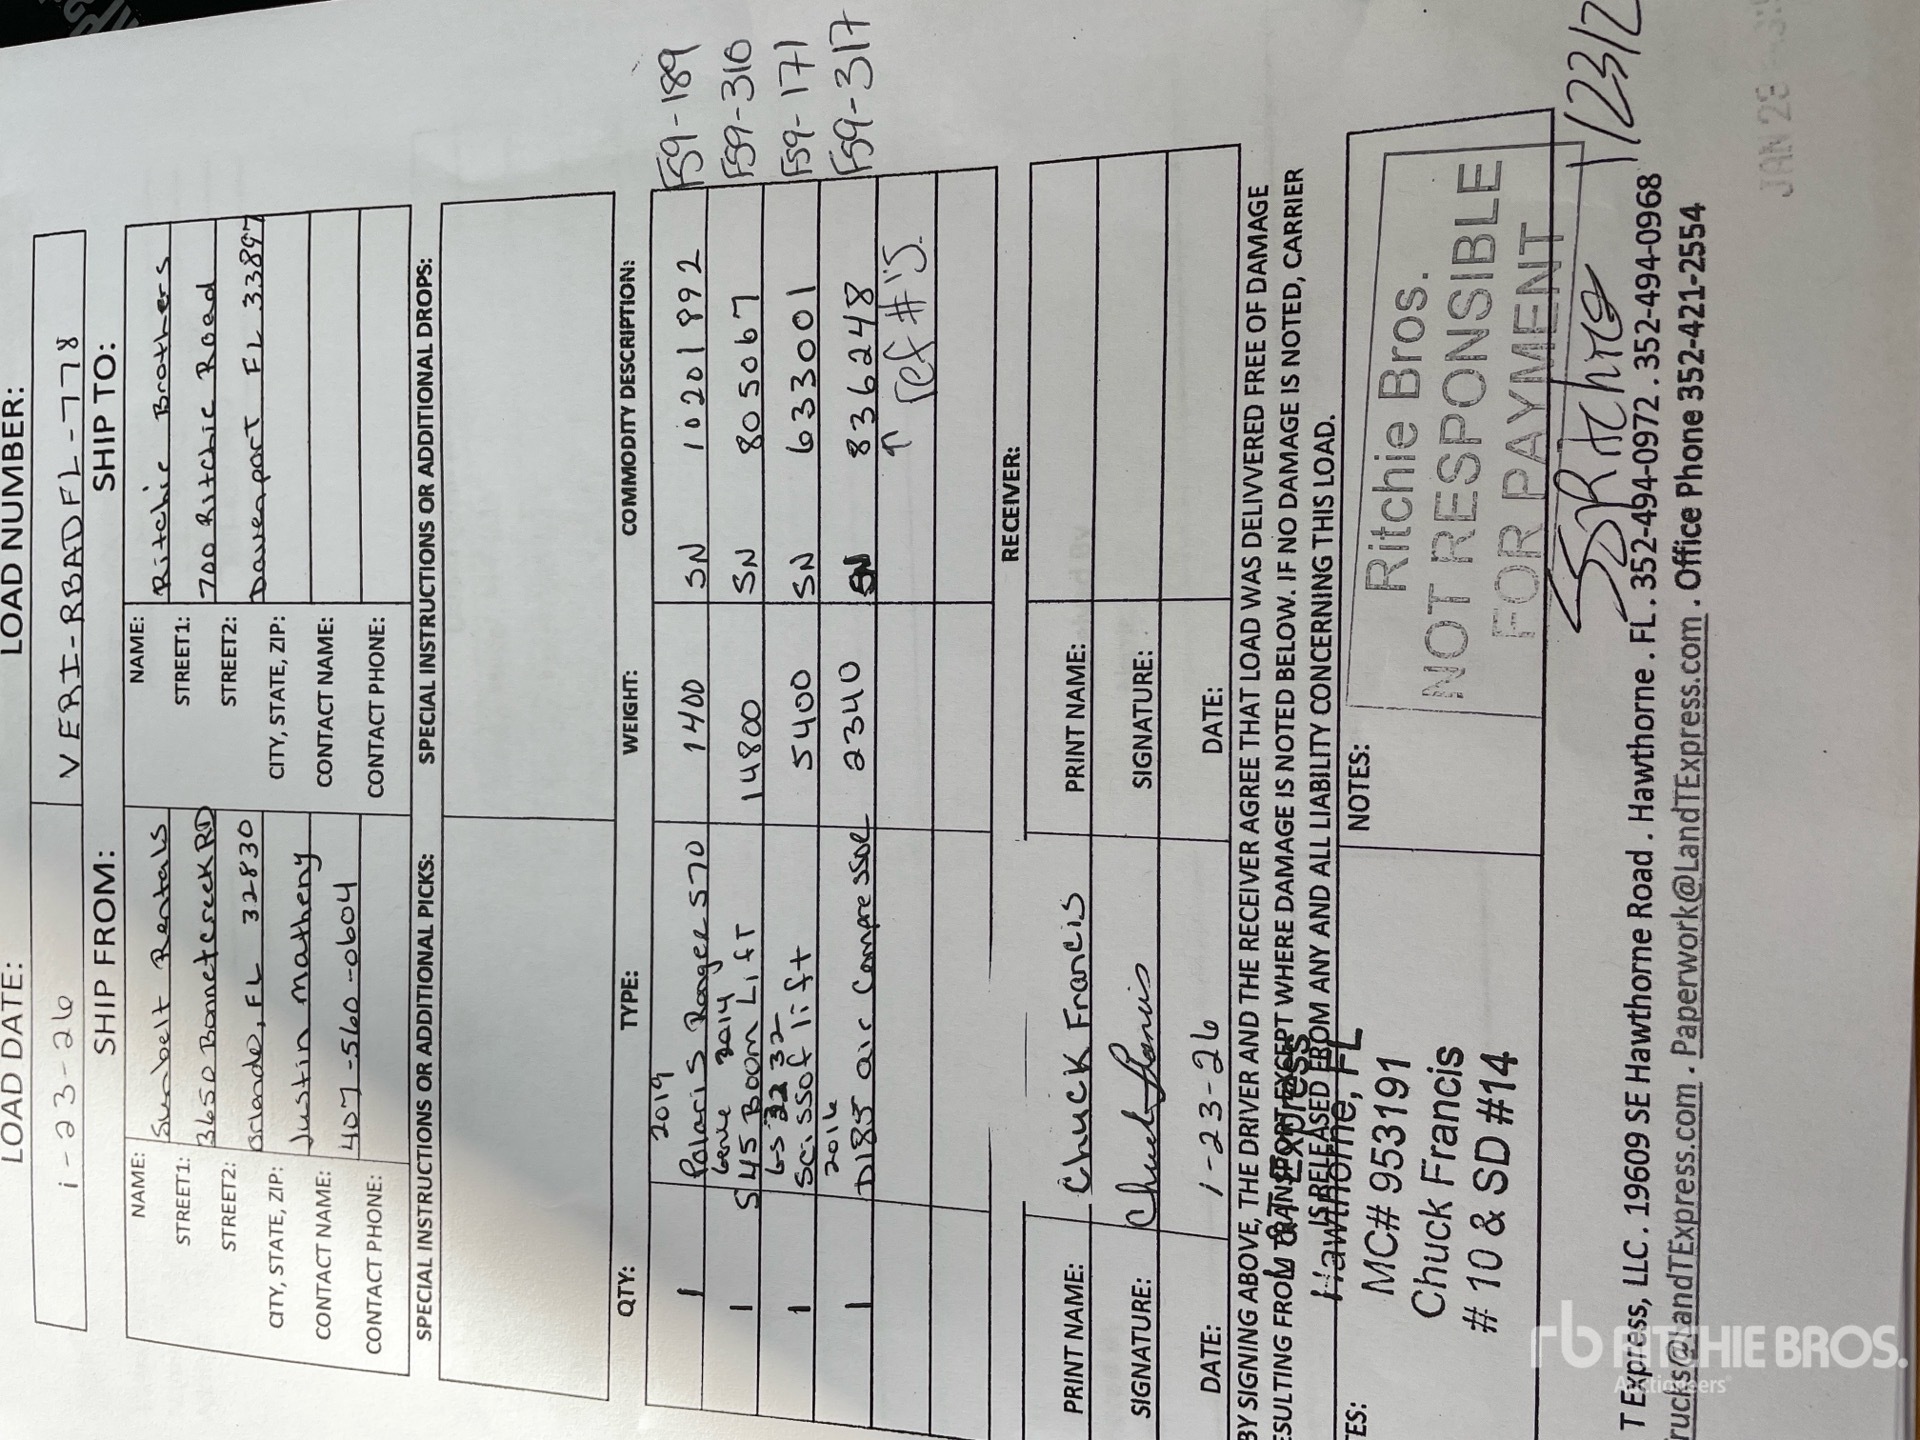 LOAD DATE: LOAD NUMBER:
1-23-26 VERI-RBADFL-778
SHIP FROM: SHIP TO:
NAME: Sunbelt Rentals NAME: Ritchie Brothers
STREET1: 3650 Bonnetcreek RD STREET1: 700 Ritchie Road
STREET2: Orlando, FL 32830 STREET2: Davenport FL 33897
CITY, STATE, ZIP: Justin Matheny CITY, STATE, ZIP:
CONTACT NAME: 407-560-0604 CONTACT NAME:
CONTACT PHONE: CONTACT PHONE:
SPECIAL INSTRUCTIONS OR ADDITIONAL PICKS: SPECIAL INSTRUCTIONS OR ADDITIONAL DROPS:
QTY: TYPE: WEIGHT: COMMODITY DESCRIPTION:
2019
1 Polaris Ranger 570 1400 SN 10201892 F59-189
2014
1 S45 Boom Lift 14800 SN 805067 F59-316
GS 3232
1 Scissor lift 5400 SN 633001 F59-171
2016
1 D185 air Compressor 2340 SN 836248 F59-317
↑ ref #'s.
RECEIVER:
PRINT NAME: Chuck Francis PRINT NAME:
SIGNATURE: Chuck Francis SIGNATURE:
DATE: 1-23-26 DATE:
BY SIGNING ABOVE, THE DRIVER AND THE RECEIVER AGREE THAT LOAD WAS DELIVERED FREE OF DAMAGE
ESULTING FROM TRANSPORT EXCEPT WHERE DAMAGE IS NOTED BELOW. IF NO DAMAGE IS NOTED, CARRIER
IS RELEASED FROM ANY AND ALL LIABILITY CONCERNING THIS LOAD.
TES: NOTES:
L & T Express
Hawthorne, FL
MC# 953191
Chuck Francis
# 10 & SD #14
Ritchie Bros.
NOT RESPONSIBLE
FOR PAYMENT
1/23/2
T Express, LLC . 19609 SE Hawthorne Road . Hawthorne . FL . 352-494-0972 . 352-494-0968
Trucks@LandTExpress.com . Paperwork@LandTExpress.com . Office Phone 352-421-2554
rb RITCHIE BROS.
Auctioneers